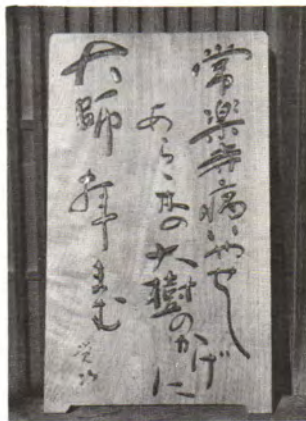 常楽寺病いやせし
あらゝ木の大樹のかげに
大師拝まむ